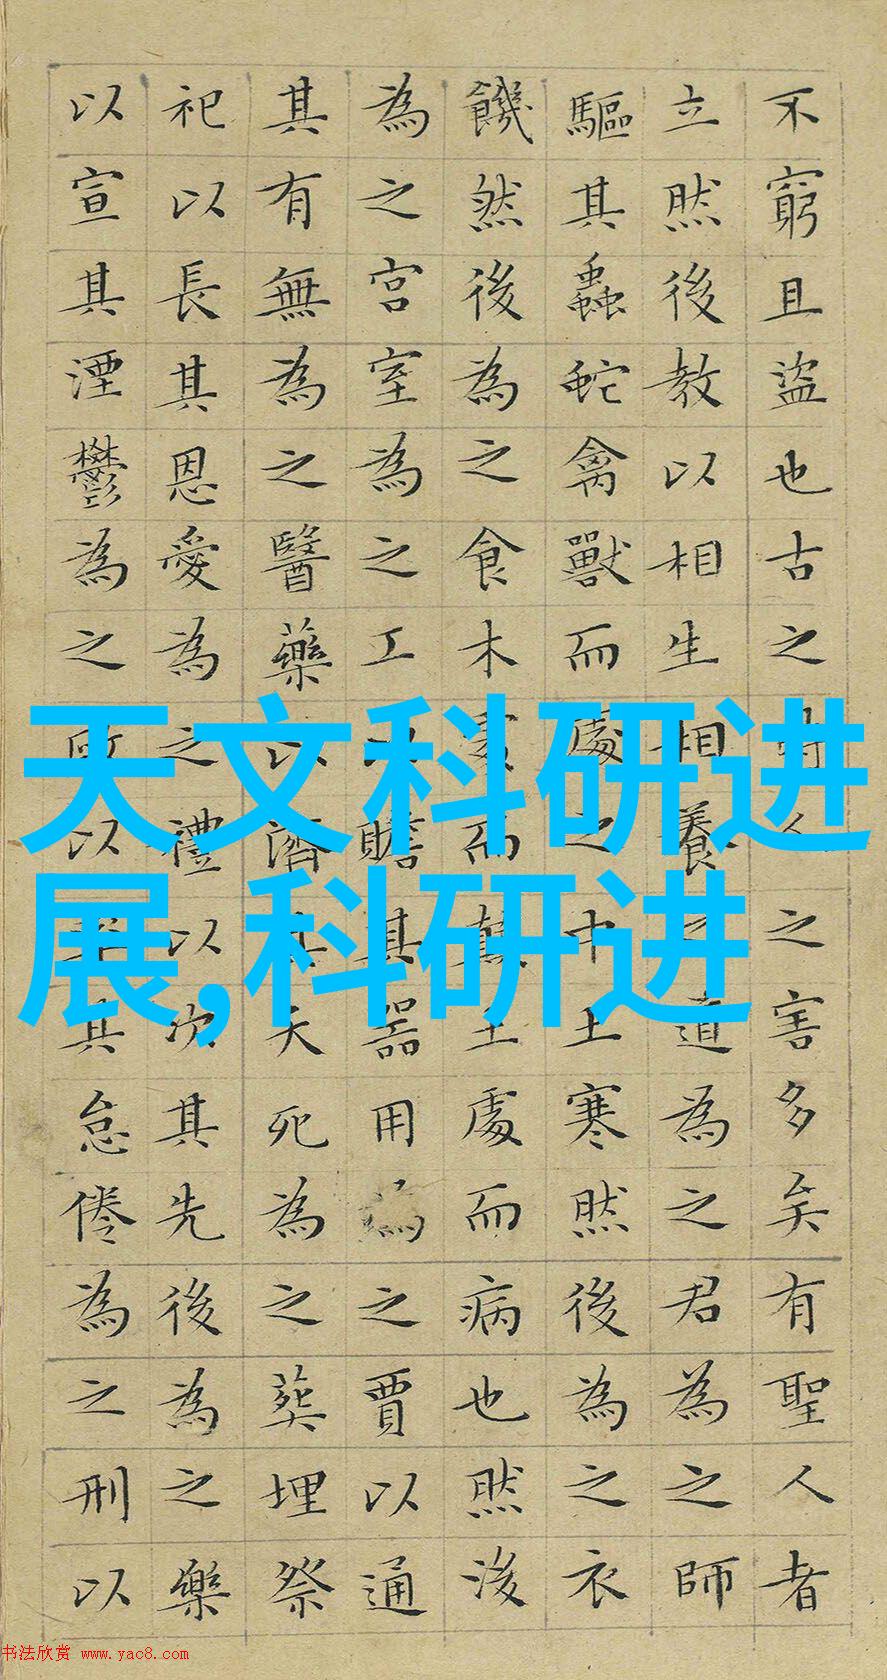 不窮且盜也古之時人之害多矣有聖人者
立然後教以相生相養之道為之君為之師
驅其蟲蛇禽獸而處之中土寒然後為之衣
饑然後為之食木處而顛土處而病也然後
為之宮室為之工以贍其器用為之賈以通
其有無為之醫藥以濟其夭死為之葬埋祭
祀以長其恩愛為之禮以次其先後為之樂
以宣其湮鬱為之以其怠倦為之刑以
天文科研进
展,科研进
书法欣赏 www.yac8.com